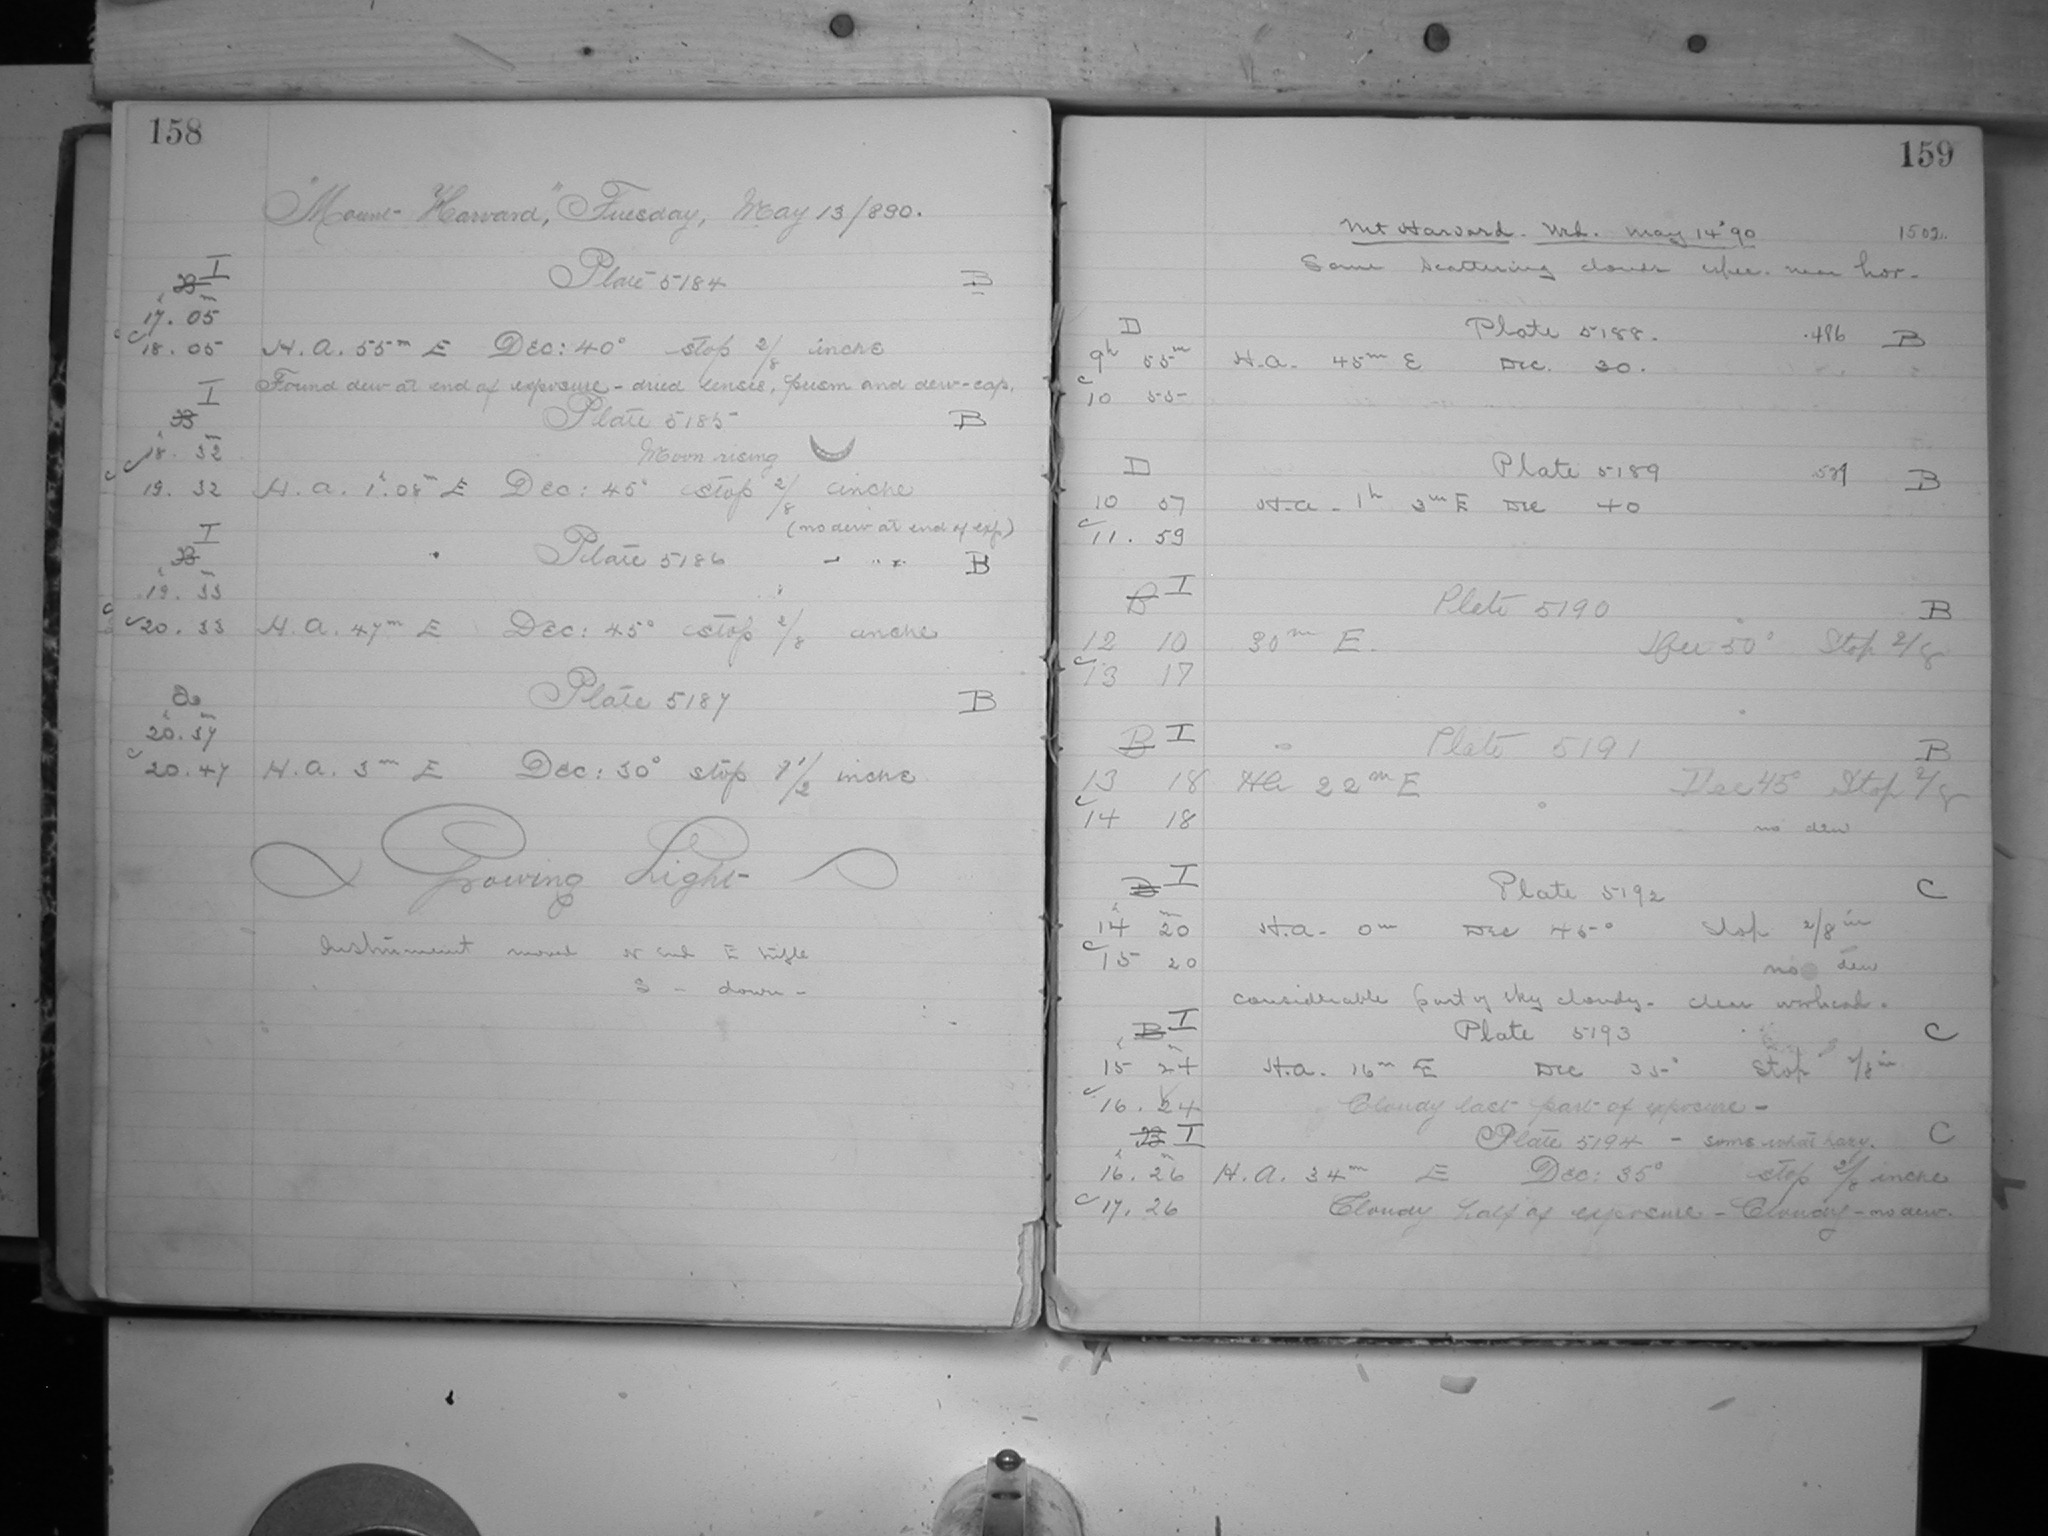 158
"Mount Harvard," Tuesday, May 13/890.
I
Plate 5184 B
17. 05
18. 05 H. A. 55m E Dec: 40° stop 2/8 inche
Found dew at end of exposure - dried lenses, prism and dew-cap.
I
Plate 5185 B
18. 32 Moon rising
19. 32 H. A. 1h. 08m E Dec: 45° stop 2/8 inche
(no dew at end of exp)
I
Plate 5186 " " B
19. 33
20. 33 H. A. 47m E Dec: 45° stop 2/8 inche
Plate 5187 B
20. 37
20. 47 H. A. 3m E Dec: 30° stop 1/2 inche
Growing Light
Instrument moved N end E trifle
S - down -
159
Mt Harvard. Wd. May 14 '90 1502.
Some scattering clouds espec. near hor.
D Plate 5188. .486 B
9h 55m H.A. 45m E Dec. 30.
10 55
D Plate 5189 B
10 57 H.A. 1h 3m E Dec 40
11. 59
B I Plate 5190 B
12 10 30m E. Dec 50° Stop 2/8
13 17
B I Plate 5191 B
13 18 HA 22m E Dec 45° Stop 2/8
14 18 no dew
B I Plate 5192 C
14h 20m H.A. 0m Dec 45° Stop 2/8 in
15 20 no dew
considerable part of sky cloudy. clear overhead.
B I Plate 5193 C
15h 24m H.A. 16m E Dec 35° Stop 2/8 in
16. 24 Cloudy last part of exposure -
B I Plate 5194 - somewhat hazy. C
16h. 26m H. A. 34m E Dec: 35° stop 2/8 inche
17. 26 Cloudy half of exposure - Cloudy - no dew.